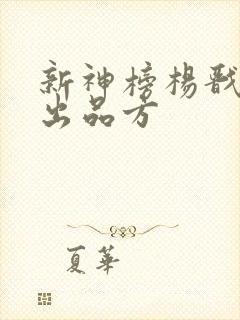 新神榜杨戬
出品方
夏華